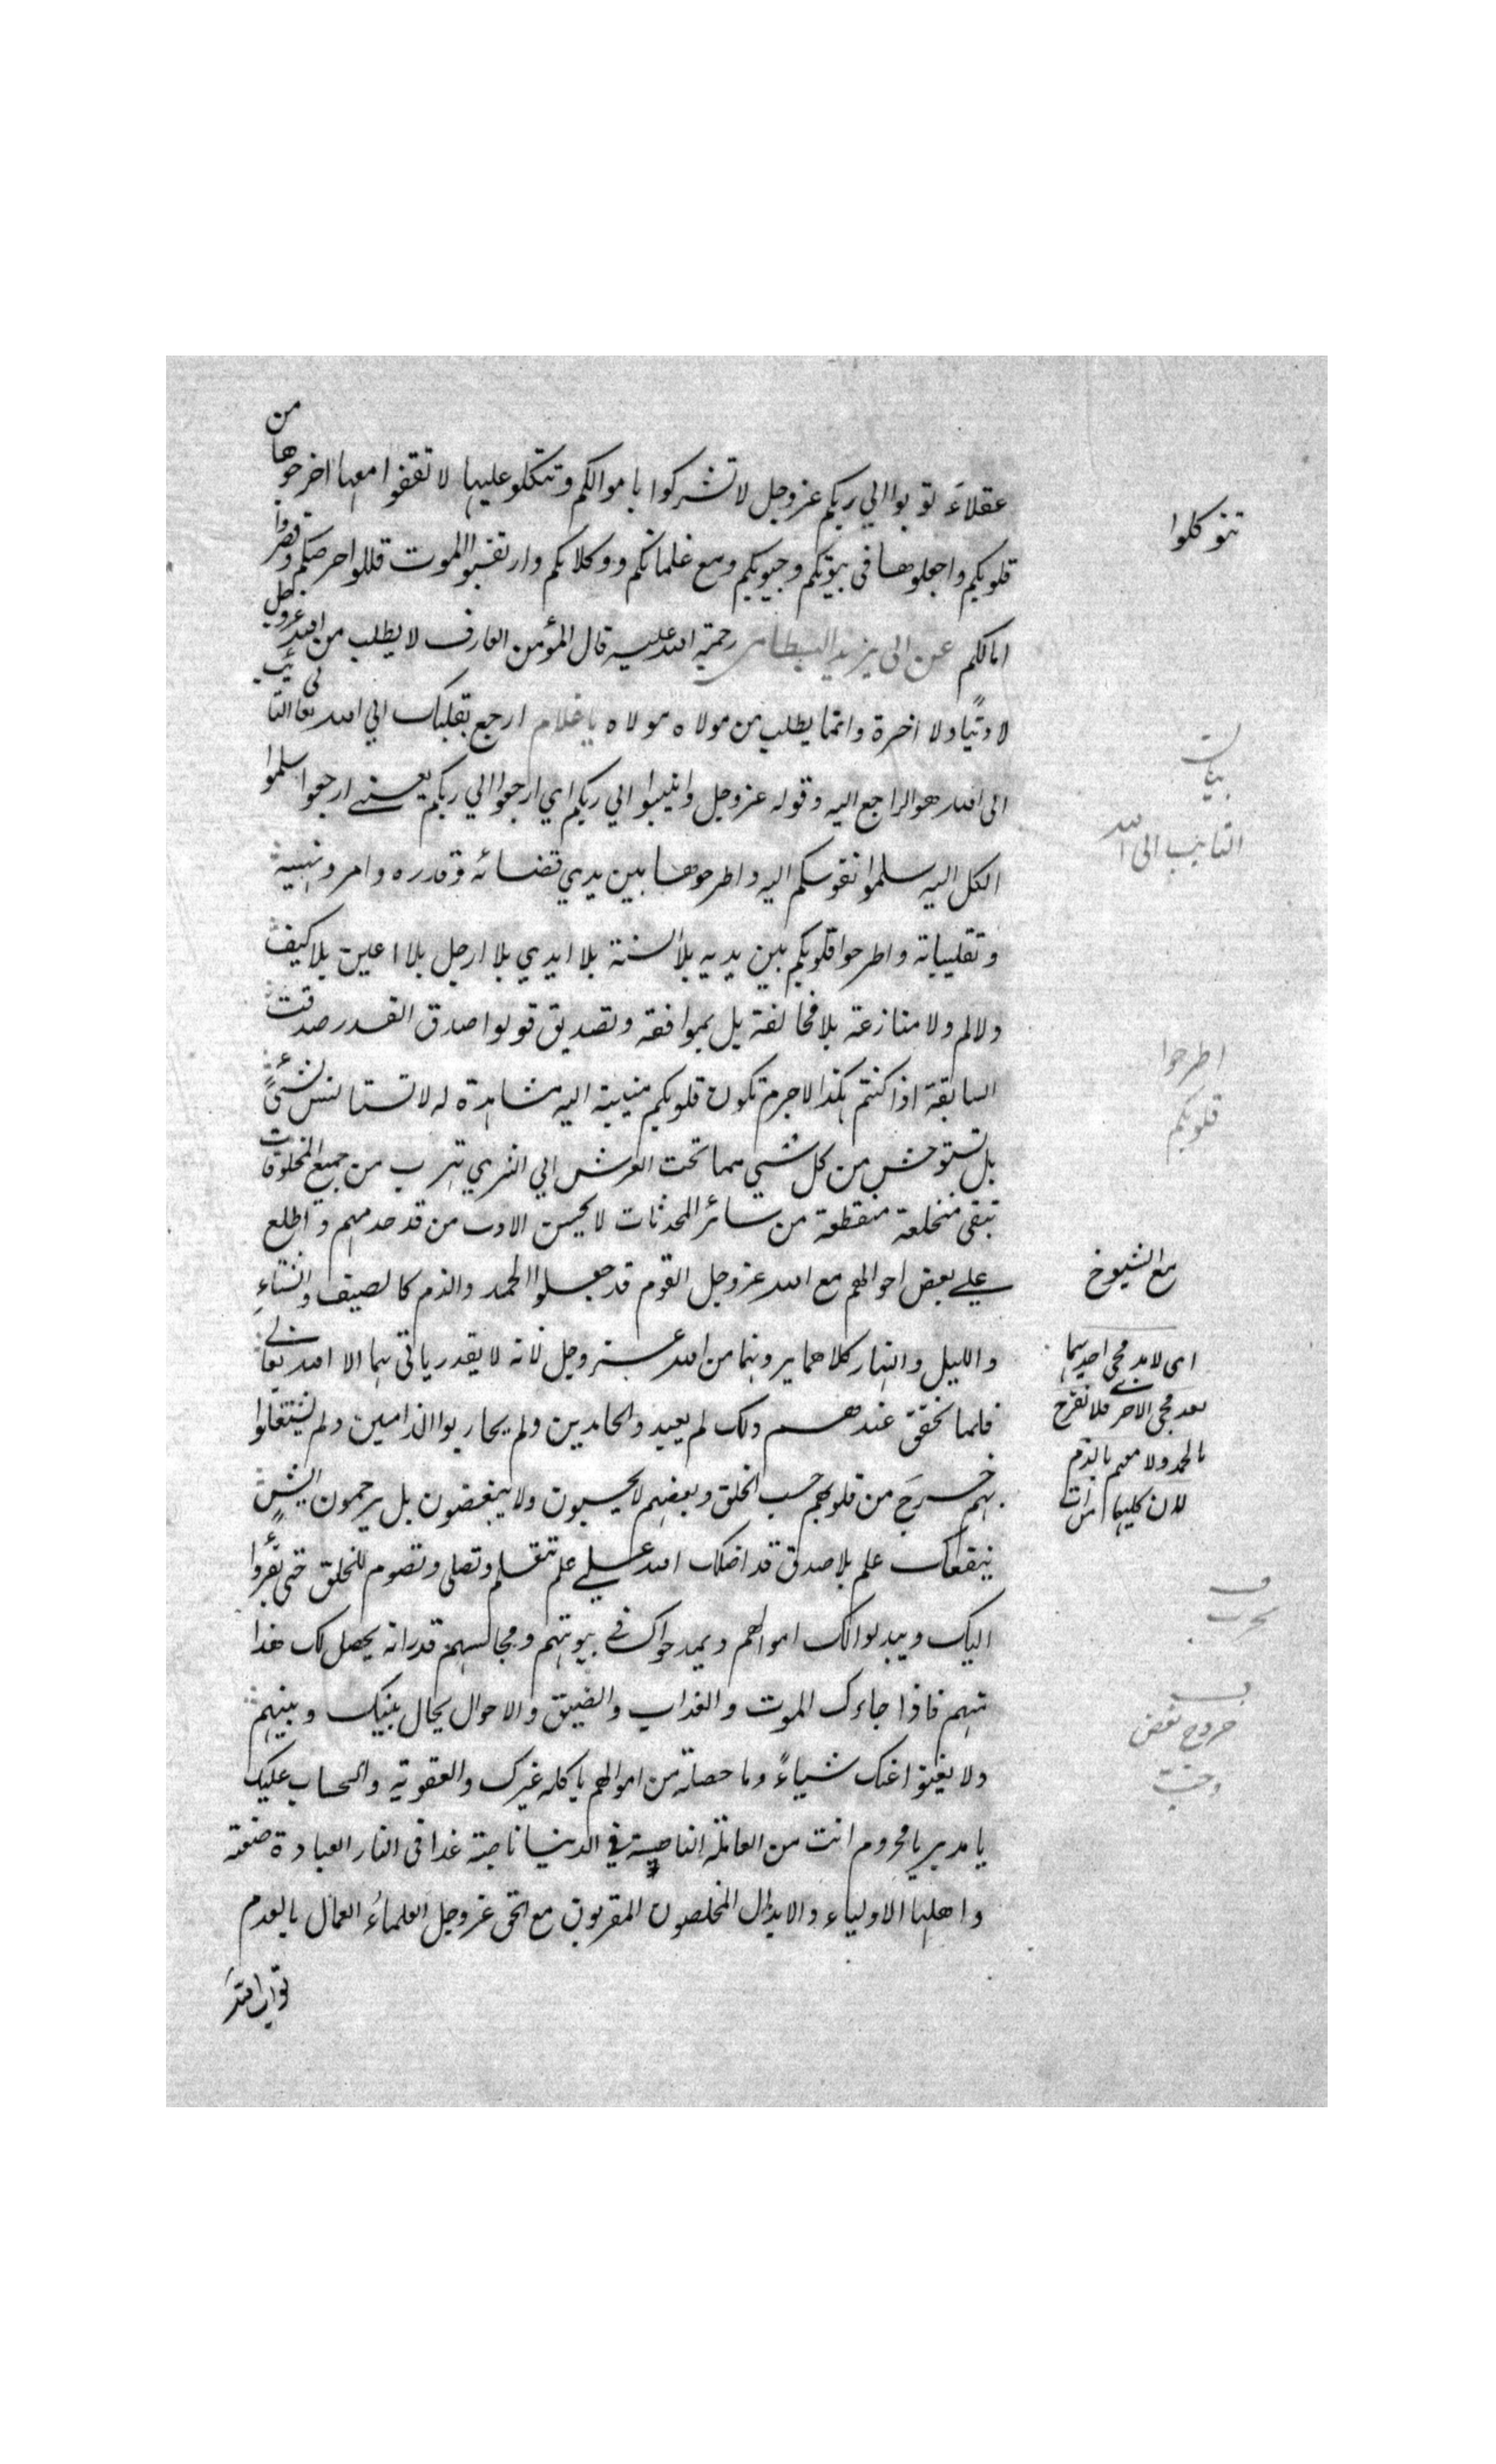 عقلاء توبوا الي ربكم عزوجل لا تشركوا باموالكم وتتكلو عليها لا تقفوا معها اخرجوها من
قلوبكم واجعلوها في بيوتكم وجيوبكم ومع غلمانكم ووكلائكم وارتقبوا الموت قللوا حرصكم وقصروا
امالكم عن ابي يزيد البسطامي رحمة الله عليه قال المؤمن العارف لا يطلب من الله عزوجل
لا دنيا ولا اخرة وانما يطلب من مولاه مولاه يا غلام ارجع بقلبك الي الله تعالى التائب
الى الله هو الراجع اليه وقوله عزوجل وانيبوا الي ربكم اي ارجعوا الي ربكم يعني ارجعوا سلموا
الكل اليه سلموا نفوسكم اليه واطرحوها بين يدي قضائه وقدره وامر ونهيه
وتقليباته واطرحوا قلوبكم بين يديه بلا السنة بلا ايدي بلا ارجل بلا اعين بلا كيف
ولا لم ولا منازعة بلا مخالفة بل بموافقة وتصديق قولوا صدق القدر صدقت
السابقة اذا كنتم هكذا لا جرم تكون قلوبكم منيبة اليه مشاهدة له لا تستانس بشئ
بل تستوحش من كل شئ مما تحت العرش الي الثري تهرب من جميع المخلوقات
تبقى منخلعة منقطعة من سائر المحدثات لا يحسن الادب من قد خدمهم واطلع
علي بعض احوالهم مع الله عزوجل القوم قد جعلوا الحمد والذم كالصيف والشتاء
والليل والنهار كلاهما يرونهما من الله عزوجل لانه لا يقدر ياتي بهما الا الله تعالى
فلما تحقق عندهم ذلك لم يعيدوا الحامدين ولم يحاربوا الذامين ولم يشتغلوا
بهم خرج من قلوبهم حب الخلق وبعضهم لا يحبون ولا يبغضون بل يرحمون ايش
ينفعك علم بلا صدق قد اضلك الله علي علم تتعلم وتصلى وتصوم للخلق حتى يقروا
اليك ويبدلوا لك اموالهم ويمدحواك في بيوتهم ومجالسهم قدر انه يحصل لك هذا
منهم فاذا جاءك الموت والعذاب والضيق والاحوال يحال بينك وبينهم
ولا يغنوا عنك شياء وما حصلته من اموالهم ياكله غيرك والعقوبة والحساب عليك
يا مدبر يا محروم انت من العاملة الناصبة في الدنيا ناصبة غدا في النار العبادة صنعة
واهلها الاولياء والابدال المخلصون المقربون مع الحق عزوجل العلماء العمال بالعلم
تتوكلوا
بيان
التائب الى الله
اطرحوا
قلوبكم
مع الشيوخ
اى لابد مجى احديهما
بعد مجى الاخر فلا تفرح
بالحمد ولا
لان كليهما